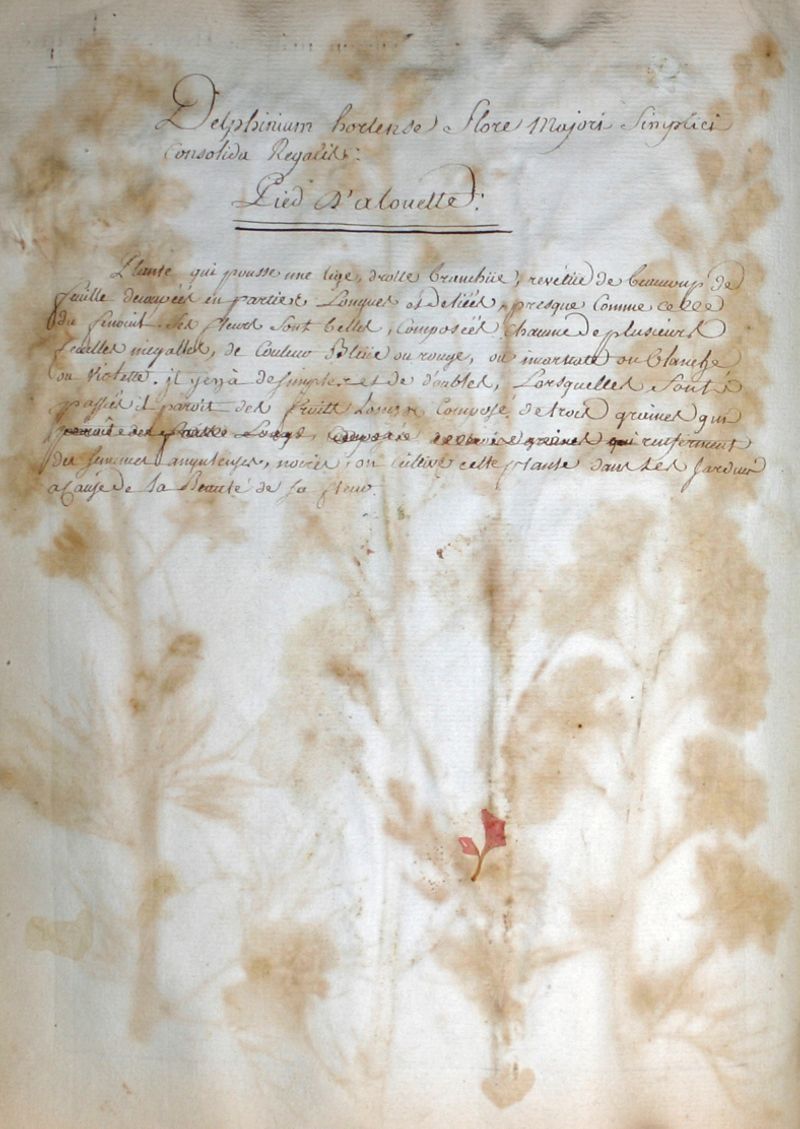 Delphinium hortense Flore Majori Simplici
Consolida Regalis:
Pied D'alouette:
Plante qui pousse une tige, droite branchüe, revétüe de beaucoup de
feuille decoupées en parties Longues et deliées, presque Comme celle
du fenouil. Ses fleurs sont belles, Composées Chacune de plusieurs
feuilles inegalles, de Couleur Bleüe ou rouge, ou incarnate ou blanche
ou Violette. il y en à de simples et de doubles, Lorsquelles sont
passées il paroit des fruits Composé de trois graines qui
renferment
des semences anguleuses, noires, on Cultive cette plante dans Les Jardins
a Cause de la Beauté de sa fleur.